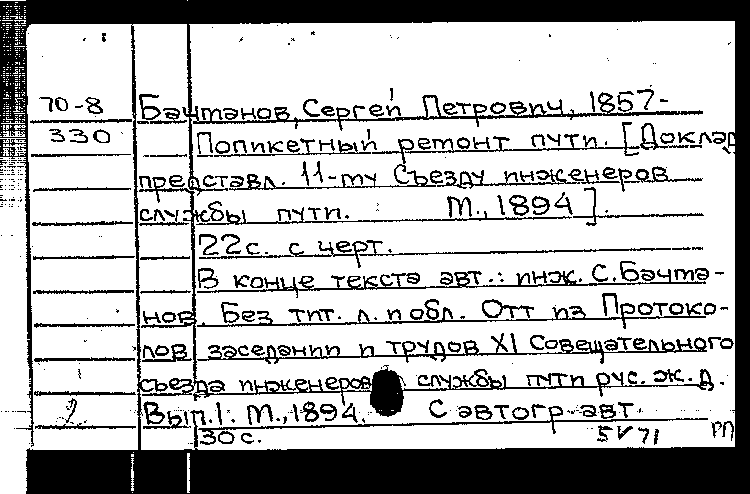 70-8 Бачманов, Сергей Петрович, 1857-
330 Попикетный ремонт пути. [Доклад,
представл. 11-му Съезду инженеров
службы пути. М., 1894].
22с. с черт.
В конце текста авт.: инж. С. Бачма-
нов. Без тит. л. и обл. Отт из Протоко-
лов заседании и трудов XI Совещательного
съезда инженеров службы пути рус. ж. д.
2 Вып. 1. М., 1894. С автогр. авт.
30 с. 5 V 71 РП